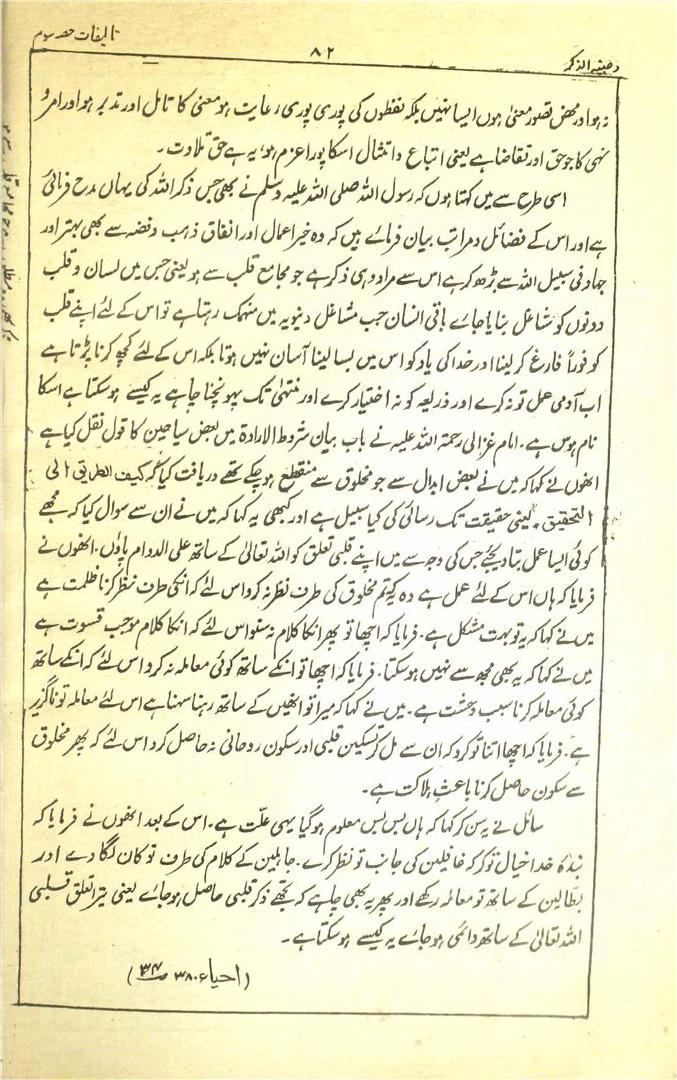 تالیفات حصہ سوم
۸۲
وصیۃ الذکر
نہ ہو اور محض تصور معنیٰ ہوں ایسا نہیں بلکہ لفظوں کی پوری پوری رعایت ہو معنی کا تامل اور تدبر ہو اور امر و
نہی کا جو حق اور تقاضا ہے یعنی اتباع و امتثال اسکا پورا عزم ہو، یہ ہے حق تلاوت۔
اسی طرح سے میں کہتا ہوں کہ رسول اللہ صلی اللہ علیہ وسلم نے بھی جس ذکر اللہ کی یہاں مدح فرمائی
ہے اور اس کے فضائل و مراتب بیان فرمائے ہیں کہ وہ خیر اعمال اور انفاق ذہب و فضہ سے بھی بہتر اور
جہاد فی سبیل اللہ سے بڑھ کر ہے اس سے مراد وہی ذکر ہے جو مجامع قلب سے ہو یعنی جس میں لسان و قلب
دونوں کو شاغل بنایا جائے باقی انسان جب مشاغل دنیویہ میں منہمک رہتا ہے تو اس کے لئے اپنے قلب
کو فوراً فارغ کر لینا اور خدا کی یاد کو اس میں بسا لینا آسان نہیں ہوتا بلکہ اس کے لئے کچھ کرنا پڑتا ہے
اب آدمی عمل تو نہ کرے اور ذریعہ کو نہ اختیار کرے اور منتہیٰ تک پہونچنا چاہے یہ کیسے ہو سکتا ہے اسکا
نام ہوس ہے۔ امام غزالی رحمۃ اللہ علیہ نے باب بیان شروط الارادۃ میں بعض سیاحین کا قول نقل کیا ہے
انھوں نے کہا کہ میں نے بعض ابدال سے جو مخلوق سے منقطع ہو چکے تھے دریافت کیا کہ کیف الطریق الی
التحقیق۔ یعنی حقیقت تک رسائی کی کیا سبیل ہے اور کبھی یہ کہا کہ میں نے ان سے سوال کیا کہ مجھے
کوئی ایسا عمل بتا دیجئے جس کی وجہ سے میں اپنے قلبی تعلق کو اللہ تعالیٰ کے ساتھ علی الدوام پاؤں۔ انھوں نے
فرمایا کہ ہاں اس کے لئے عمل ہے وہ یہ کہ تم مخلوق کی طرف نظر نہ کرو اس لئے کہ انکی طرف نظر کرنا ظلمت ہے
میں نے کہا کہ یہ تو بہت مشکل ہے۔ فرمایا کہ اچھا تو پھر انکا کلام نہ سنو اس لئے کہ انکا کلام موجب قسوت ہے
میں نے کہا کہ یہ بھی مجھ سے نہیں ہو سکتا۔ فرمایا کہ اچھا تو انکے ساتھ کوئی معاملہ نہ کرو اس لئے کہ انکے ساتھ
کوئی معاملہ کرنا سبب وحشت ہے۔ میں نے کہا کہ میرا تو انھیں کے ساتھ رہنا سہنا ہے اس لئے معاملہ تو ناگزیر
ہے۔ فرمایا کہ اچھا اتنا تو کرو کہ ان سے مل کر تسکین قلبی اور سکون روحانی نہ حاصل کرو اس لئے کہ پھر مخلوق
سے سکون حاصل کرنا باعث ہلاکت ہے۔
سائل نے یہ سن کر کہا کہ ہاں بس بس معلوم ہو گیا یہی علّت ہے۔ اس کے بعد انھوں نے فرمایا کہ
بندۂ خدا خیال تو کر کہ غافلین کی جانب تو نظر کرے۔ جاہلین کے کلام کی طرف تو کان لگا دے اور
بطّالین کے ساتھ تو معاملہ رکھے اور پھر یہ بھی چاہے کہ تجھے ذکر قلبی حاصل ہو جائے یعنی تیرا تعلق قلبی
اللہ تعالیٰ کے ساتھ دائمی ہو جائے یہ کیسے ہو سکتا ہے۔
(احیاء